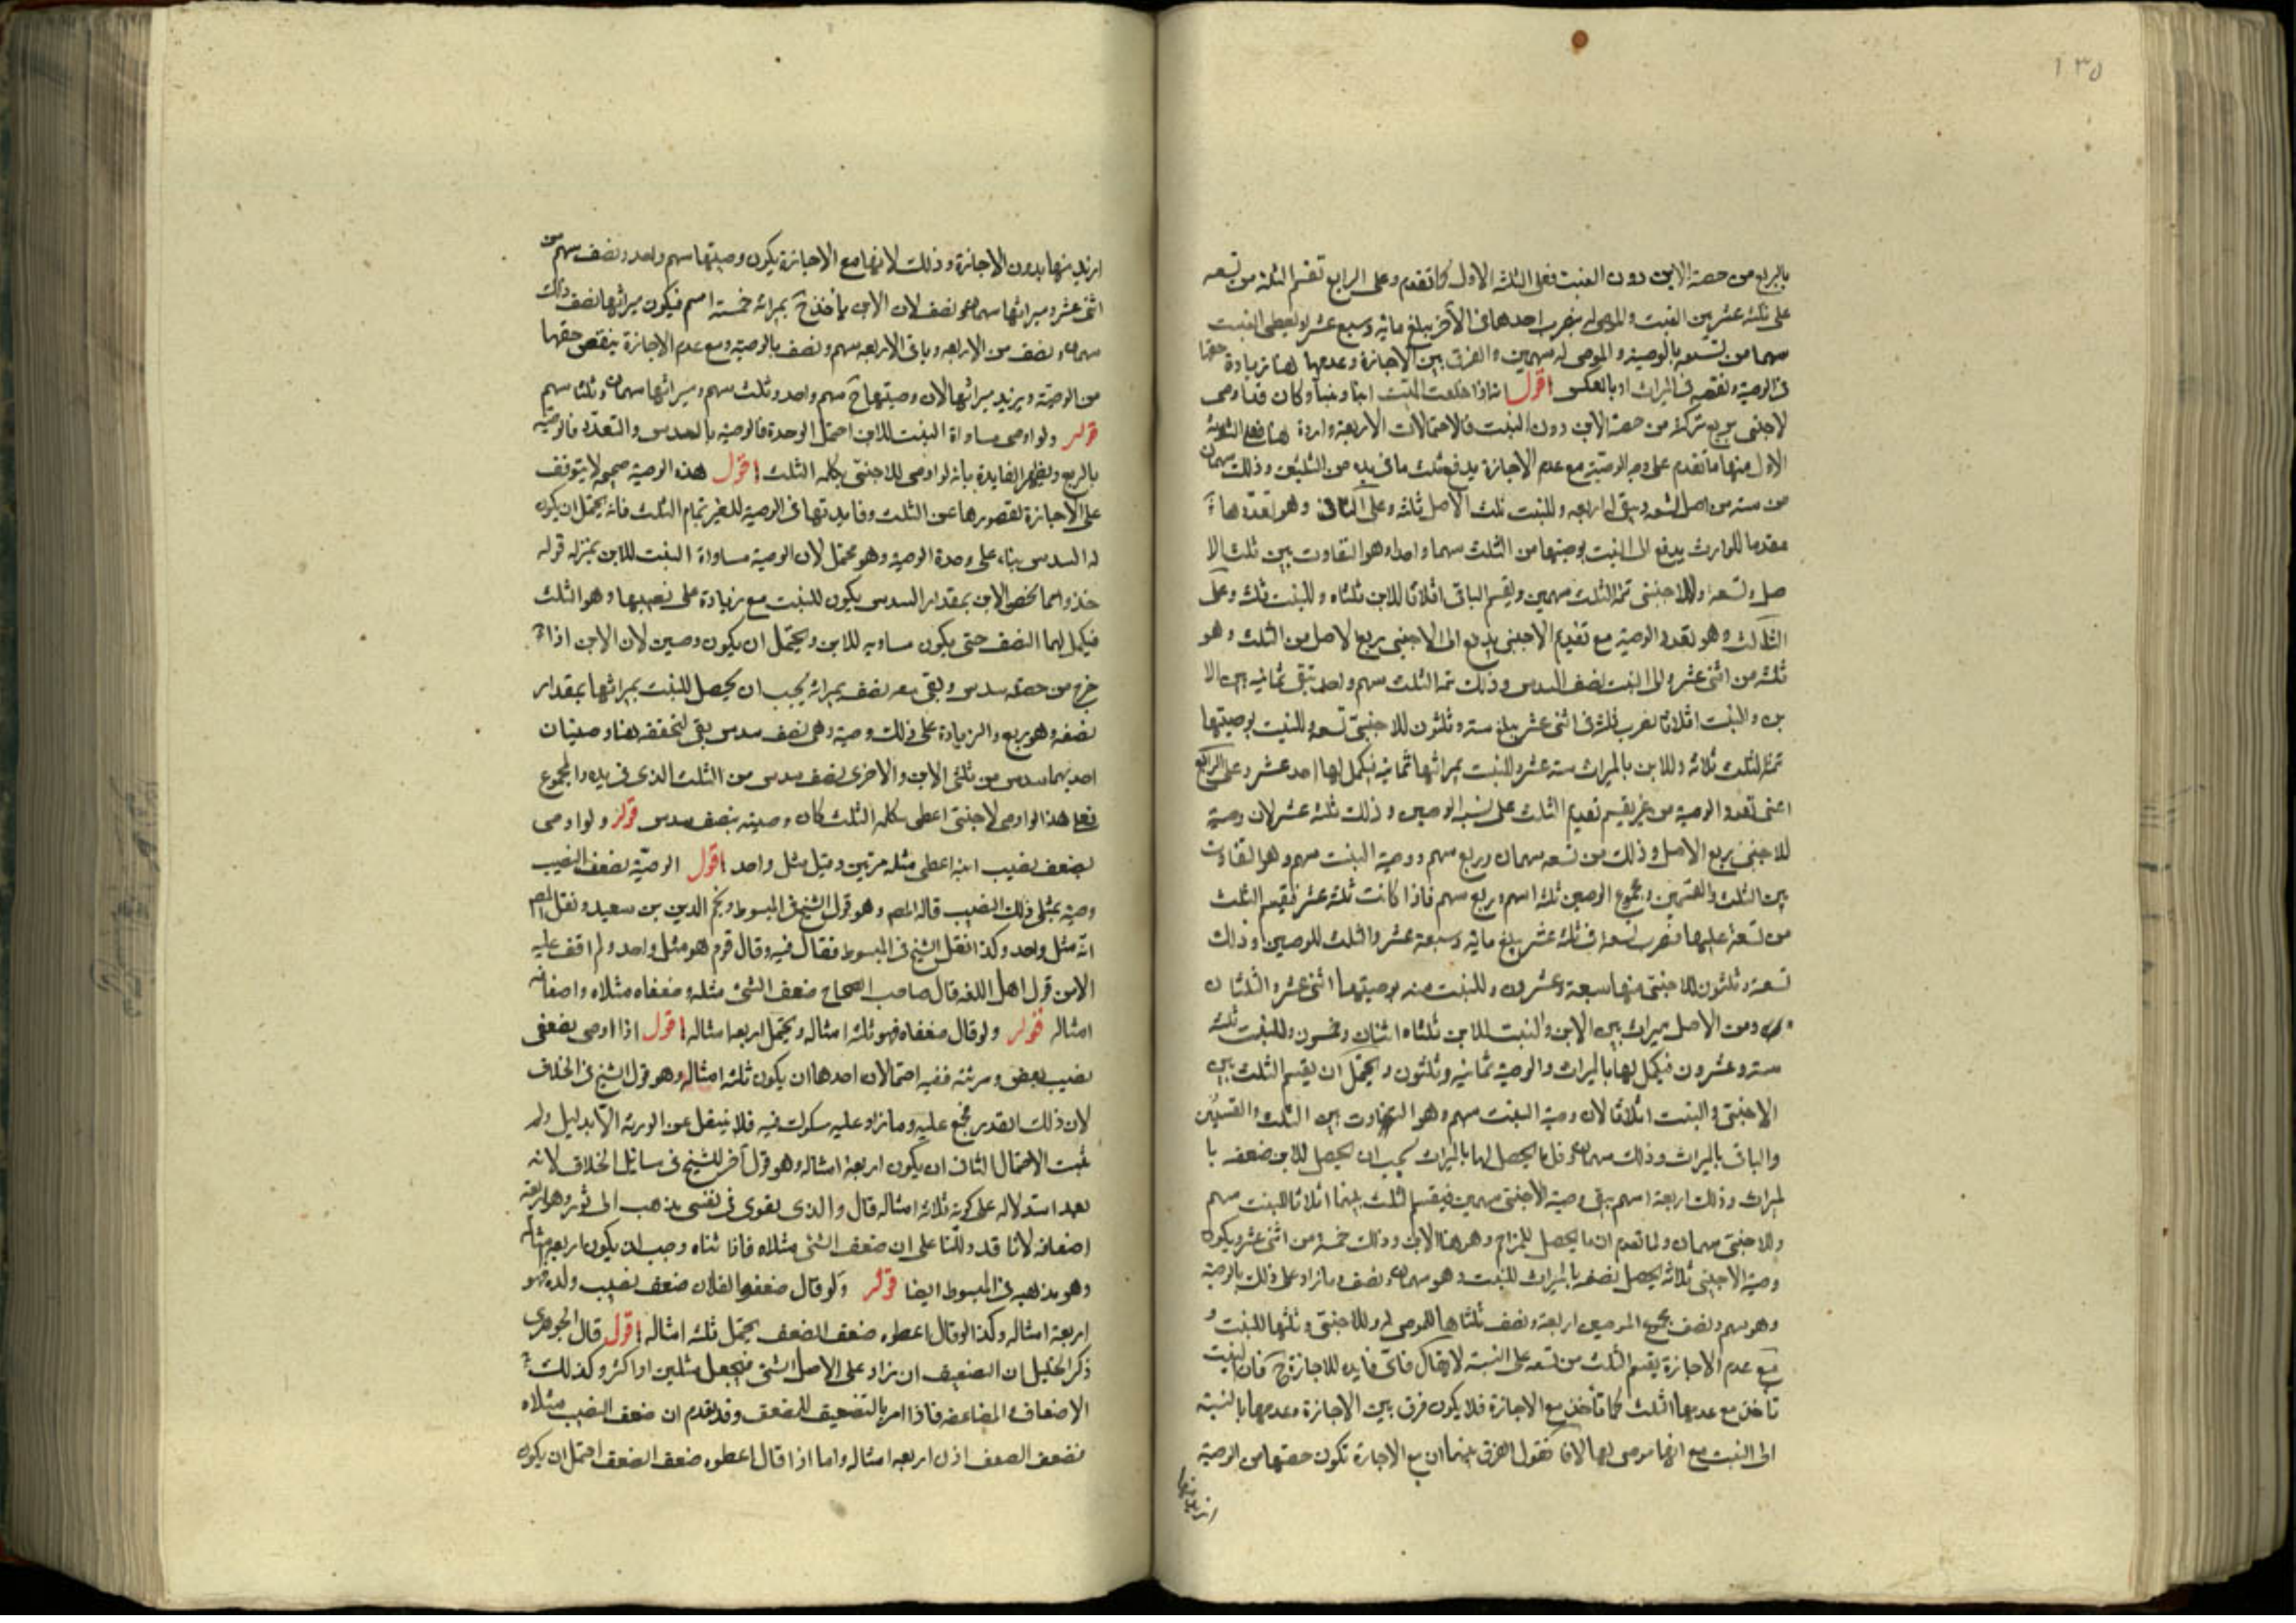 ١٣٥
بالربع من حصة الابن دون البنت فعلى الثلثة الاول كما تقدم وعلى الرابع تقسم الثلثة من تسعه
على ثلثة عشر بين البنت والموصى له يضرب احدهما فى الآخر يبلغ مائة وسبع عشر او يعطى البنت
سهما من تسعه بالوصيه والموصى له سهمين والفرق بين الاجازة وعدمها لها زيادة حقها
فى الوصيه ونقصه فى الميراث او بالعكس اقول اذا خلفت الميت ابنا وبنتا وكان قد اوصى
لاجنبى بربع تركة من حصة الابن دون البنت فالاحتمالات الاربعة واردة هنا فعلى التقدير
الاول منها ما تقدم على وجه الوصيّة مع عدم الاجازة يدفع ثلث ما فى يده من الثلثين وذلك سهمان
من سته من اصل التسعه ويبقى له اربعه وللبنت ثلث الاصل ثلثه وعلى الثانى وهو تعددها
مقدما للوارث يدفع الى البنت بوصيتها من الثلث سهما واحدا وهو التفاوت بين ثلث الا
صل وتسعه وللاجنبى تمة الثلث سهمين ويقسم الباقى اثلاثا للابن ثلثاه وللبنت ثلث وعلى
الثالث وهو تعدد الوصية مع تقديم الاجنبى يدفع الى الاجنبى بربع الاصل من الثلث وهو
ثلثه من اثنى عشر والى البنت نصف السدس وذلك تمة الثلث سهم واحد تبقى ثمانيه بين الا
بن والبنت اثلاثا نضرب ثلثه فى اثنى عشر يبلغ سته وثلثون للاجنبىّ تسعه وللبنت بوصيتها
تمة الثلث ثلاثه وللابن بالميراث سته عشر وللبنت بميراثها ثمانيه فيكمل لها احد عشر وعلى الرابع
اعنى تعدد الوصية من غير تقسيم تقديم الثلث على نسبة الوصيين وذلك ثلثة عشر لان وصية
للاجنبى بربع الاصل وذلك من تسعه سهمان وربع سهم ووصية البنت سهم وهو التفاوت
بين الثلث والقسمين ومجموع الوصيين ثلثه اسهم وربع سهم فاذا كانت ثلثة عشر فيقسم الثلث
من تسعة عليها فنضرب تسعه فى ثلثه عشر يبلغ مائة وسبعة عشر والثلث للوصيين وذلك
تسعة وثلثون للاجنبى منها سبعة وعشرون وللبنت منه بوصيتها اثنى عشر والثلثان
ومن الاصل ميراث بين الابن والبنت للابن ثلثاه اثنان وخمسون وللبنت ثلثه
سته وعشرون فيكمل لها بالميراث والوصيه ثمانيه وثلثون ويحتمل ان يقسم الثلث بين
الاجنبى والبنت اثلاثا لان وصية البنت سهم وهو التفاوت بين الثلث والقسمين
والباقى بالميراث وذلك سهمان فلما يحصل لها بالميراث يجب ان يحصل للابن ضعفه با
لميراث وذلك اربعة اسهم يبقى وصية الاجنبى سهمين فيقسم الثلث بينهما اثلاثا للبنت سهم
وللاجنبى سهمان ولما تقدم ان ما يحصل للمزاحم وهو هنا الابن وذلك خمسة من اثنى عشر ويكون
وصية الاجنبى ثلاثه يحصل نصفه بالميراث للبنت وهو سهمان ونصف وما زاد على ذلك بالوصية
وهو سهم ونصف مجموع الوصيين اربعة ونصف ثلثاها للموصى له وللاجنبى وثلثها للبنت و
مع عدم الاجازة يقسم الثلث من تسعه على النسبة لا يقال فاىّ فايده للاجازة ح فان البنت
تاخذ مع عدمها الثلث كما تأخذ مع الاجازة فلا يكون فرق بين الاجازة وعدمها بالنسبة
الى البنت مع انها موصى لها لانا نقول الفرق بينهما ان مع الاجازة تكون حصتها من الوصية
ازيد منها
ازيد منها بدون الاجازة وذلك لانها مع الاجازة يكون وصيتها سهم واحد ونصف سهم من
اثنى عشر وميراثها سهمان ونصف لان الابن ياخذ ح بميراثه خمسة اسهم فيكون ميراثها نصف ذلك
سهمان ونصف من الاربعه وباقى الاربعه سهم ونصف بالوصية ومع عدم الاجازة ينقص حقها
من الوصيّة ويزيد ميراثها لان وصيتها ح سهم واحد وثلث سهم وميراثها سهمان وثلثا سهم
قوله ولو اوصى مساواة البنت للابن احتمل الوحدة فالوصيه بالسدس والتعدّد فالوصيّه
بالربع وتظهر الفايدة بانه لو اوصى للاجنبىّ بكله الثلث اقول هذه الوصية صحيحه لا يتوقف
على الاجازة لقصورها عن الثلث وفايدتها فى الوصية للغير تمام الثلث فانه يحتمل ان يكون
له السدس بناء على وحدة الوصيه وهو محتمل لان الوصية مساواة البنت للابن بمنزله قوله
خذوا مما يخص الابن بمقدار السدس يكون للبنت مع زيادة على نصيبها وهو الثلث
فيكمل لهما النصف حتى يكون مساويه للابن ويحتمل ان يكون وصيين لان الابن اذا
خرج من حصته سدس وبقى معه نصف بميراثه يجب ان يحصل للبنت بميراثها بمقدار
نصفه وهو ربع والزيادة على ذلك وصية وهى نصف سدس بقى لتحققه هنا وصيتان
احديهما سدس من ثلثى الابن والاخرى نصف سدس من الثلث الذى فى يده والمجموع
فعلى هذا لو اوصى لاجنبىّ اعطى بكله الثلث كان وصيته بنصف سدس قوله ولو اوصى
بضعف نصيب ابنه اعطى مثله مرتين وقيل مثل واحد اقول الوصيّة بضعف النصيب
وصية بمثلى ذلك النصيب قاله المص وهو قول الشيخ فى المبسوط ونجم الدين بن سعيد ونقل المص
انّه مثل واحد وكذا نقل الشيخ فى المبسوط فقال فيه وقال قوم هو مثل واحد ولم اقف عليه
الا من قول اهل اللغه قال صاحب الصحاح ضعف الشئ مثله وضعفاه مثلاه واضعافه
امثاله قوله ولو قال ضعفاه فهو ثلثه امثاله ويحتمل اربعه امثاله اقول اذا اوصى بضعفى
نصيب بعض ورثته ففيه احتمالان احدهما ان يكون ثلثه امثاله وهو قول الشيخ فى الخلاف
لان ذلك القدر مجمع عليه وما زاد عليه سكوت فيه فلا ينتقل عن الورثه الّا بدليل ولم
يثبت الاحتمال الثانى ان يكون اربعة امثاله وهو قول آخر للشيخ فى مسائل الخلاف لانه
بعد استدلاله على كونه ثلاثه امثاله قال والذى يقوى فى نفسى مذهب ابى ثور وهو اربعة
اضعافه لانا قد دلّلنا على ان ضعف الشئ مثلاه فاذا ثناه وجب ان يكون اربعه امثاله
وهو مذهبه فى المبسوط ايضا قوله ولو قال ضعفوا لفلان ضعف نصيب ولده فهو
اربعة امثاله وكذا لو قال اعطوه ضعف الضعف يحتمل ثلثه امثاله اقول قال الجوهرى
ذكر الخليل ان التضعيف ان يزاد على الاصل الشئ فيجعل مثلين او اكثر وكذلك
الاضعاف والمضاعفه فاذا امر بالتضعيف للضعف وقد تقدم ان ضعف النصيب مثلاه
فضعف الضعف اذن اربعه امثاله واما اذا قال اعطوه ضعف الضعف احتمل ان يكون